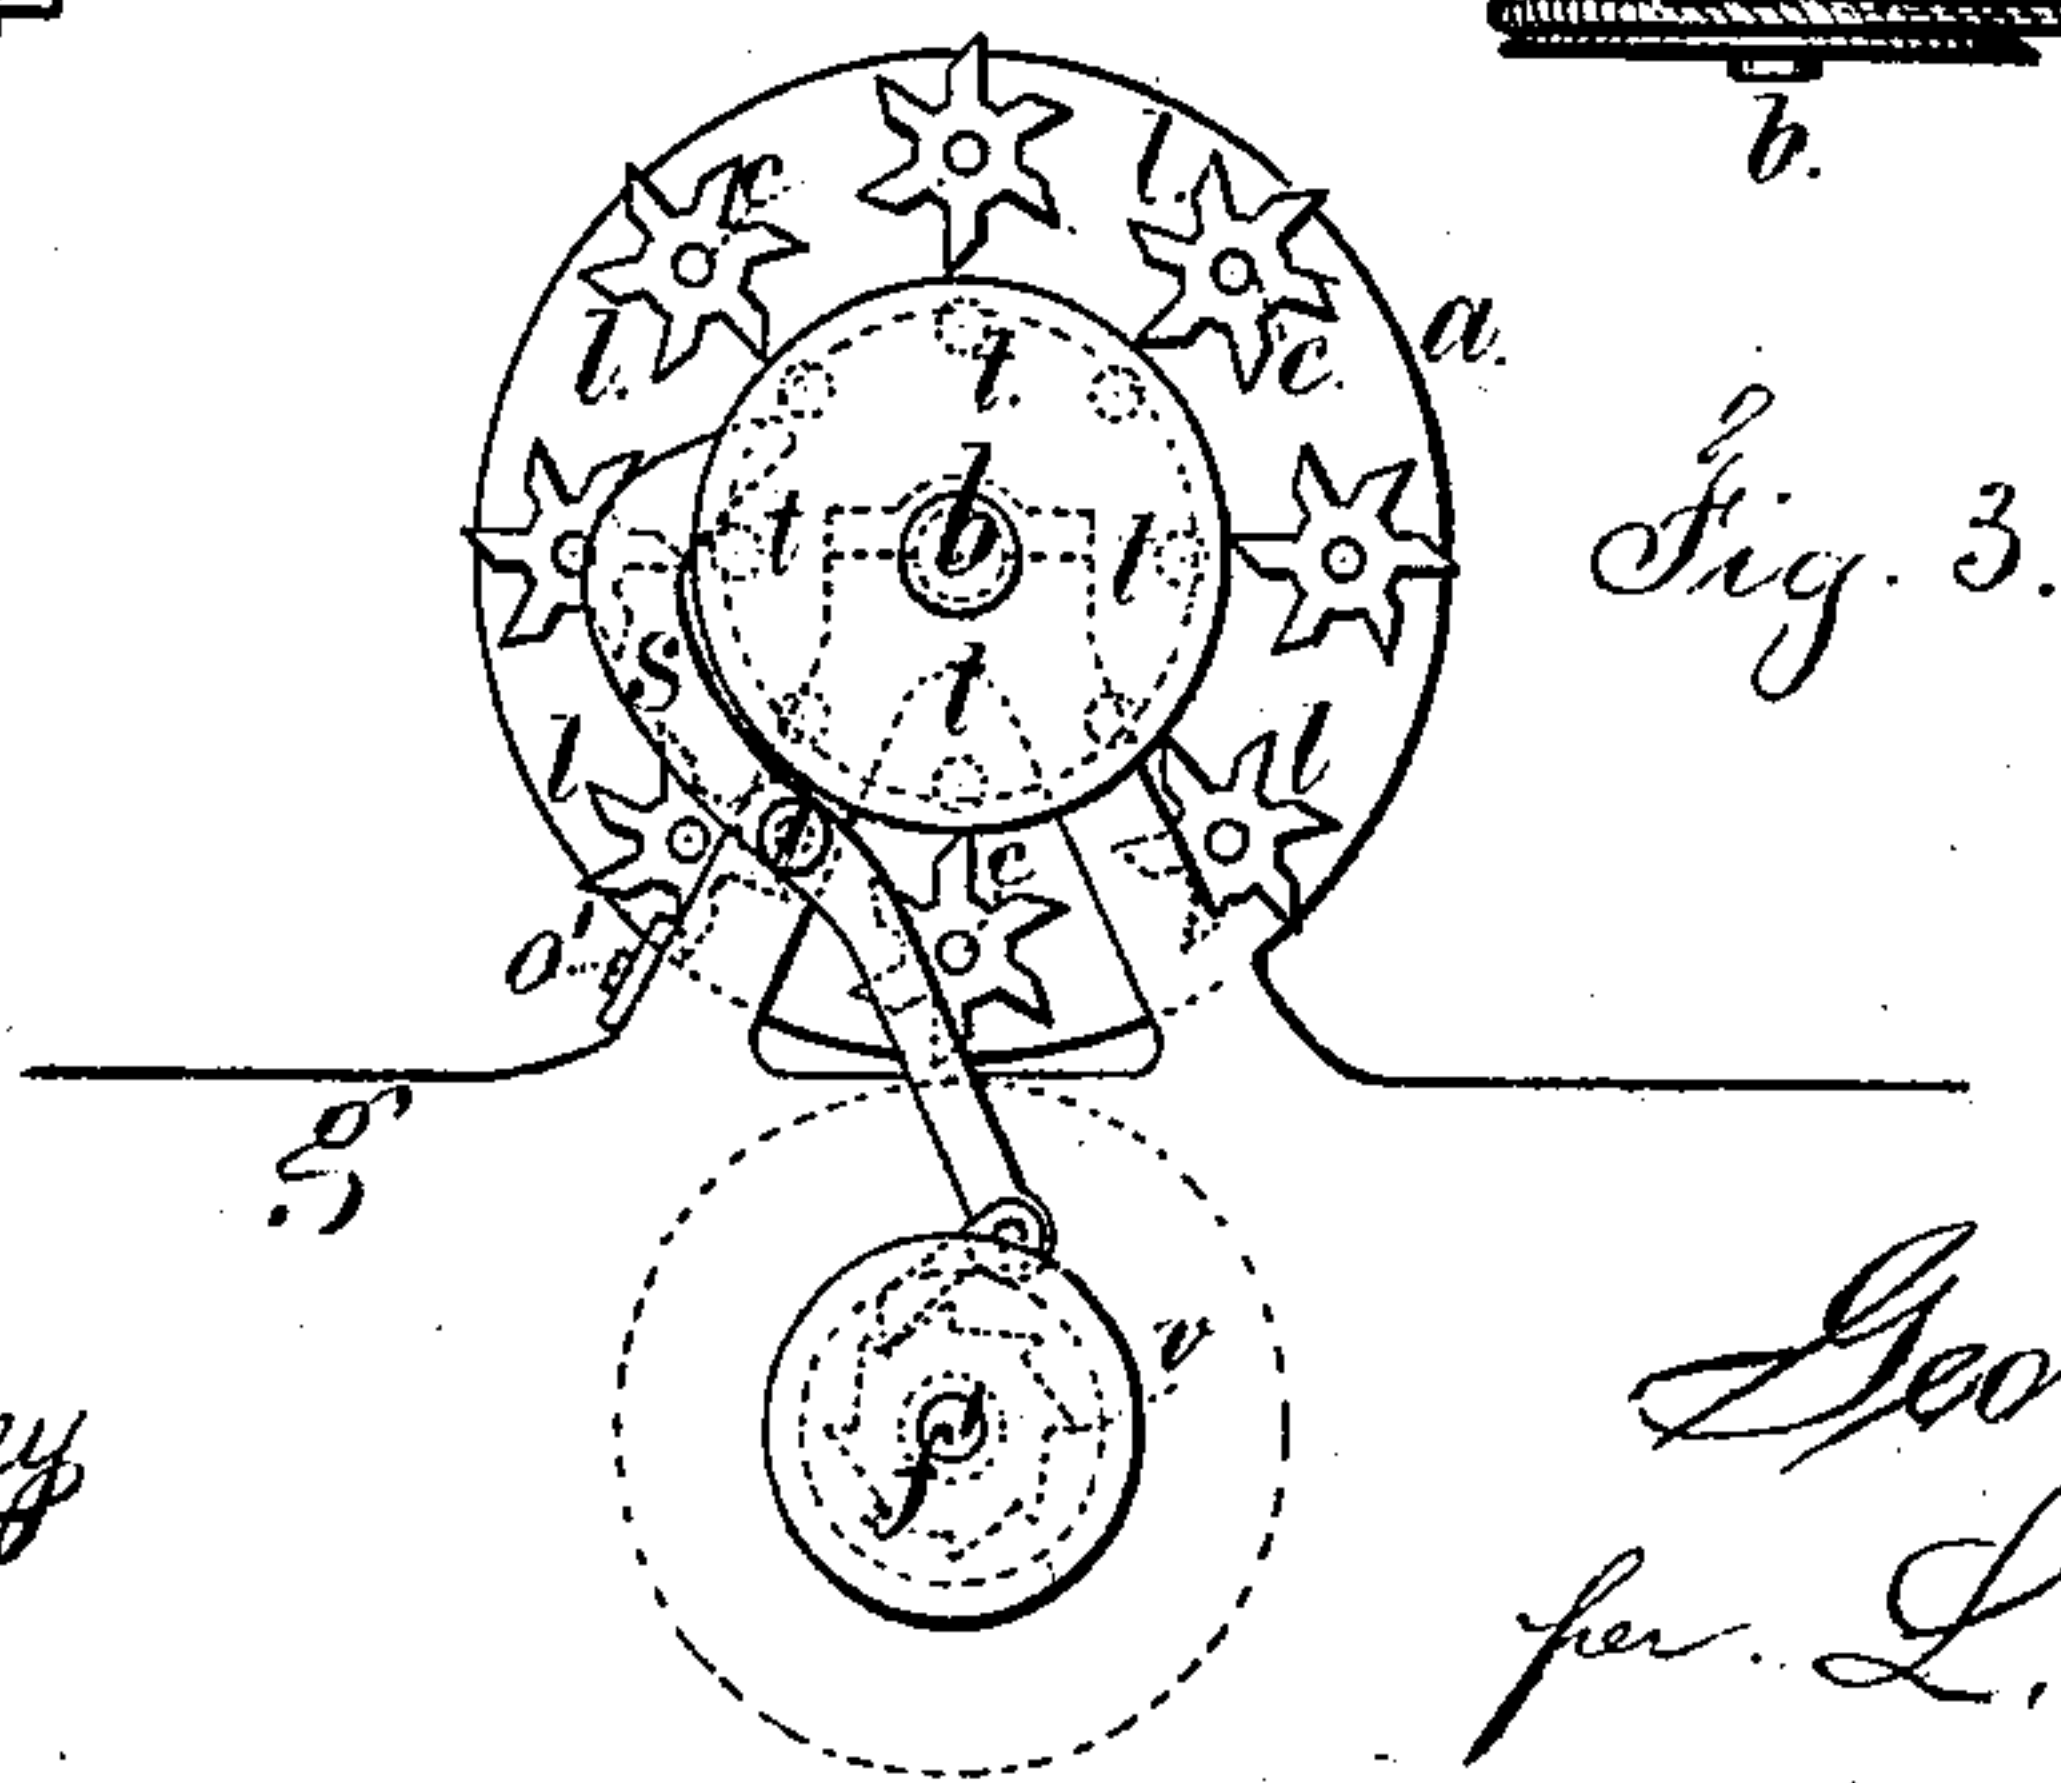 b.
l.
c.
a.
l.
c.
t.
Fig. 3.
b
t
t
t
S
l
l
c
o'
g'
v
f
Geo
per. L.